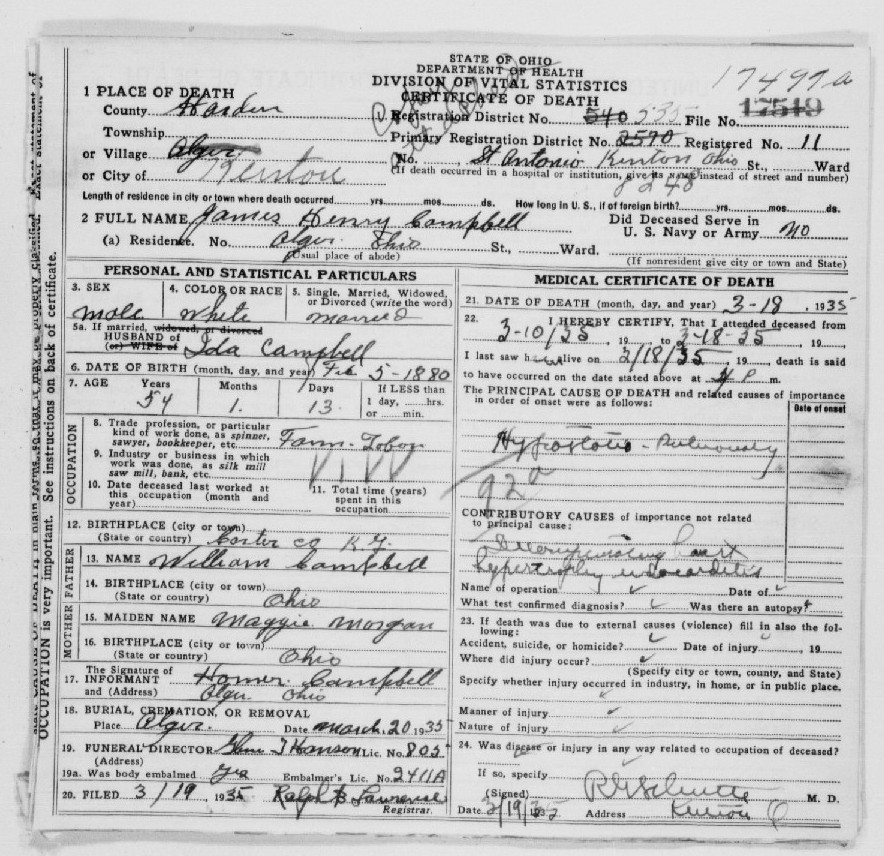 STATE OF OHIO
DEPARTMENT OF HEALTH
DIVISION OF VITAL STATISTICS
CERTIFICATE OF DEATH
17497a
1 PLACE OF DEATH
County Hardin
Registration District No. 540 535 File No. 17519
Township
Primary Registration District No. 2570 Registered No. 11
or Village Alger
No. St Antonio Kenton Ohio St., Ward
or City of Kenton
(If death occurred in a hospital or institution, give its name instead of street and number)
8248
Length of residence in city or town where death occurred yrs. mos. ds. How long in U. S., if of foreign birth? yrs. mos. ds.
2 FULL NAME James Henry Campbell
Did Deceased Serve in
U. S. Navy or Army no
(a) Residence. No. Alger Ohio St., Ward.
(Usual place of abode)
(If nonresident give city or town and State)
PERSONAL AND STATISTICAL PARTICULARS
3. SEX
male
4. COLOR OR RACE
White
5. Single, Married, Widowed,
or Divorced (write the word)
Married
5a. If married, widowed, or divorced
HUSBAND of
(or) WIFE of Ida Campbell
6. DATE OF BIRTH (month, day, and year) Feb 5-1880
7. AGE Years Months Days If LESS than
54 1. 13. 1 day, hrs.
or min.
OCCUPATION
8. Trade profession, or particular
kind of work done, as spinner,
sawyer, bookkeeper, etc. Farm-Labor
9. Industry or business in which
work was done, as silk mill
saw mill, bank, etc.
10. Date deceased last worked at
this occupation (month and
year)
11. Total time (years)
spent in this
occupation
12. BIRTHPLACE (city or town)
(State or country) Co Ky.
FATHER
13. NAME William Campbell
14. BIRTHPLACE (city or town)
(State or country) Ohio
MOTHER
15. MAIDEN NAME Maggie Morgan
16. BIRTHPLACE (city or town)
(State or country) Ohio
17. The Signature of
INFORMANT Homer Campbell
and (Address) Alger Ohio
18. BURIAL, CREMATION, OR REMOVAL
Place Alger. Date March 20 1935
19. FUNERAL DIRECTOR Hanson Lic. No. 805
(Address)
19a. Was body embalmed Yes Embalmer's Lic. No. 2411A
20. FILED 3/19, 1935 Ralph B Lawrence
Registrar.
MEDICAL CERTIFICATE OF DEATH
21. DATE OF DEATH (month, day, and year) 3-18, 1935
22. I HEREBY CERTIFY, That I attended deceased from
3-10/35, 19 to 3-18-35, 19
I last saw him alive on 3/18/35, 19 death is said
to have occurred on the date stated above at 4 P m.
The PRINCIPAL CAUSE OF DEATH and related causes of importance
in order of onset were as follows:
Date of onset
Hypostatic - Pulmonary
92a
CONTRIBUTORY CAUSES of importance not related
to principal cause:
Decompensating heart
hypertrophy endocarditis
Name of operation Date of
What test confirmed diagnosis? Was there an autopsy?
23. If death was due to external causes (violence) fill in also the fol-
lowing:
Accident, suicide, or homicide? Date of injury, 19
Where did injury occur?
(Specify city or town, county, and State)
Specify whether injury occurred in industry, in home, or in public place.
Manner of injury
Nature of injury
24. Was disease or injury in any way related to occupation of deceased?
If so, specify
(Signed) M. D.
Date 3/19/35 Address Kenton O
OCCUPATION is very important. See instructions on back of certificate.